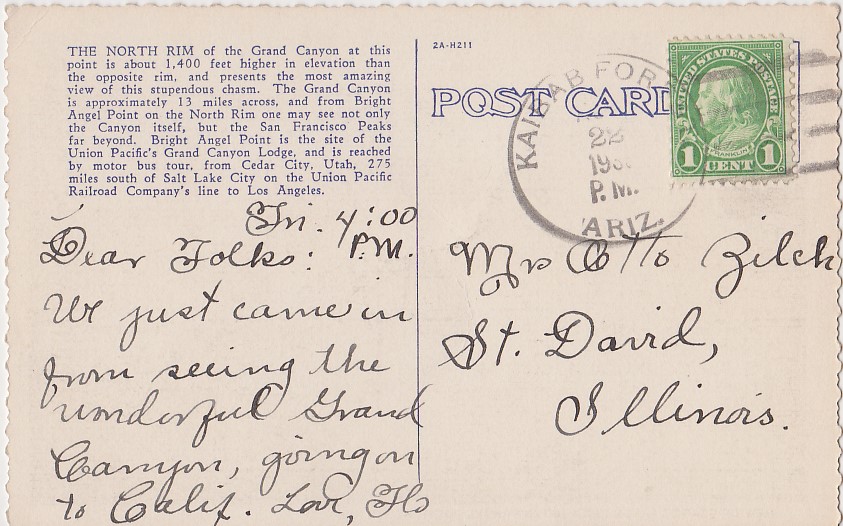 THE NORTH RIM of the Grand Canyon at this
point is about 1,400 feet higher in elevation than
the opposite rim, and presents the most amazing
view of this stupendous chasm. The Grand Canyon
is approximately 13 miles across, and from Bright
Angel Point on the North Rim one may see not only
the Canyon itself, but the San Francisco Peaks
far beyond. Bright Angel Point is the site of the
Union Pacific's Grand Canyon Lodge, and is reached
by motor bus tour, from Cedar City, Utah, 275
miles south of Salt Lake City on the Union Pacific
Railroad Company's line to Los Angeles.
Fri. 4:00
P.M.
Dear Folks:
We just came in
from seeing the
wonderful Grand
Canyon, going on
to Calif. Love, Flo
2A-H211
POST CARD
KAIBAB FOR
22
193
P.M.
ARIZ.
UNITED STATES POSTAGE
FRANKLIN
1 CENT 1
Mrs Otto Zilch
St. David,
Illinois.